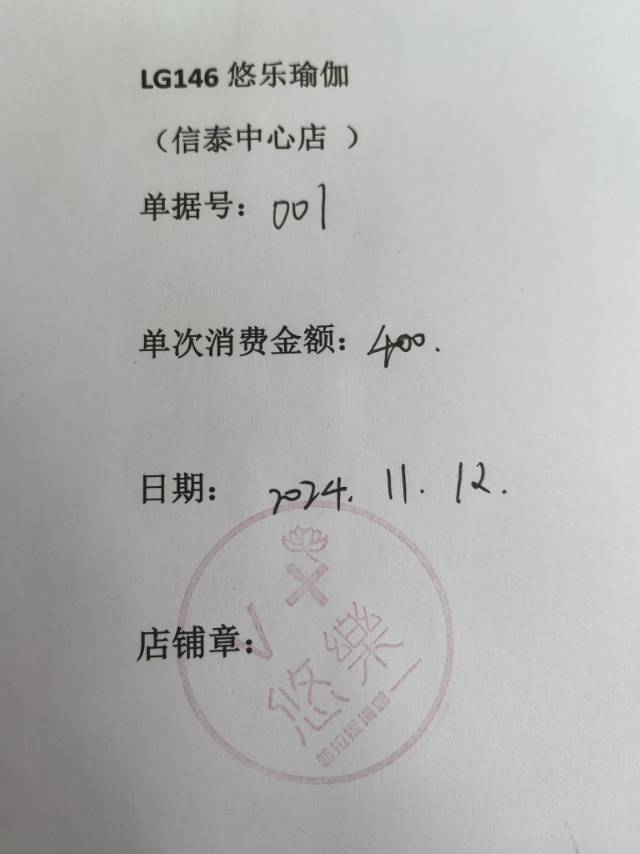 LG146 悠乐瑜伽
（信泰中心店 ）
单据号：001
单次消费金额：400.
日期： 2024. 11. 12.
店铺章：
悠樂
普拉提瑜伽